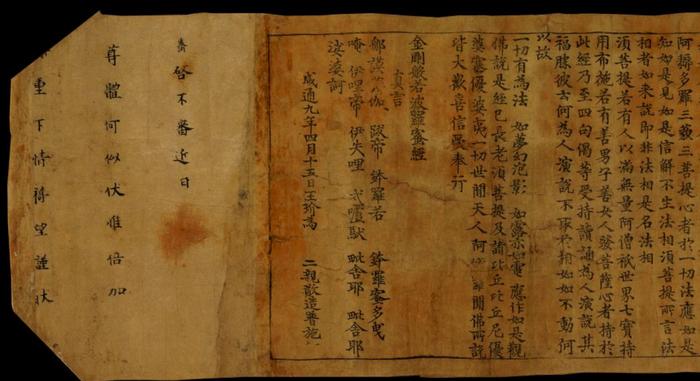 阿耨多羅三藐三菩提心者於一切法應如是
知如是見如是信解不生法相須菩提所言法
相者如來說即非法相是名法相
須菩提若有人以滿無量阿僧祇世界七寶持
用布施若有善男子善女人發菩薩心者持於
此經乃至四句偈等受持讀誦為人演說其
福勝彼云何為人演說不取於相如如不動何
以故
一切有為法 如夢幻泡影 如露亦如電 應作如是觀
佛說是經已長老須菩提及諸比丘比丘尼優
婆塞優婆夷一切世間天人阿 羅聞佛所說
皆大歡喜信受奉行
金剛般若波羅蜜經
真言
那謨 伽 跋帝 鉢羅若 鉢羅蜜多曳
唵 伊哩帝 伊失哩 戍嚧馱 毗舍耶 毗舍耶
娑婆訶
咸通九年四月十五日王玠為 二親敬造普施
啓不審近日
尊體何似伏惟倍加
重下情禱望謹狀